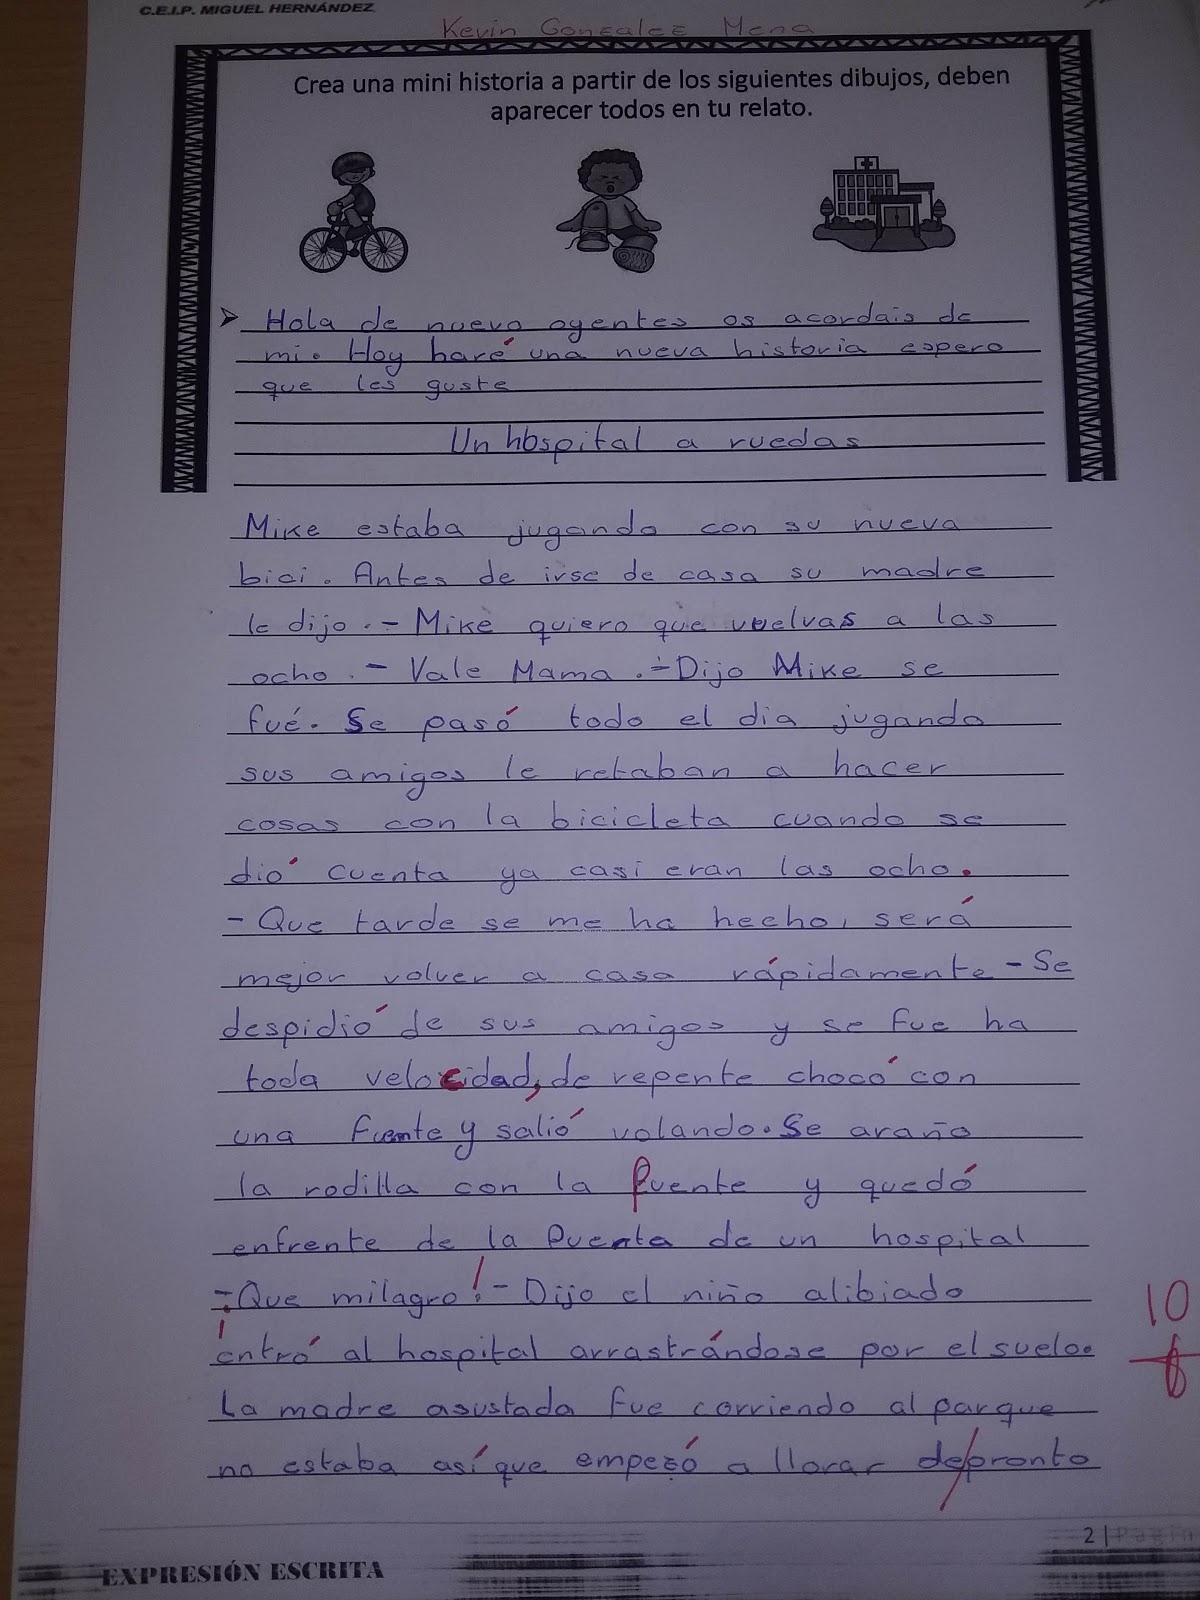 C.E.I.P. MIGUEL HERNÁNDEZ
Kevin Gonzalez Mena
Crea una mini historia a partir de los siguientes dibujos, deben
aparecer todos en tu relato.
➢ Hola de nuevo oyentes os acordais de
mi. Hoy haré una nueva historia espero
que les guste
Un hospital a ruedas
Mike estaba jugando con su nueva
bici. Antes de irse de casa su madre
le dijo.- Mike quiero que vuelvas a las
ocho.- Vale Mama.-Dijo Mike se
fué. Se pasó todo el dia jugando
sus amigos le retaban a hacer
cosas con la bicicleta cuando se
dió cuenta ya casi eran las ocho.
- Que tarde se me ha hecho, será
mejor volver a casa rápidamente - Se
despidió de sus amigos y se fue ha
toda velocidad, de repente chocó con
una fuente y salió volando. Se araño
la rodilla con la fuente y quedó
enfrente de la puenta de un hospital
-¡Que milagro!- Dijo el niño alibiado
entró al hospital arrastrándose por el suelo.
La madre asustada fue corriendo al parque
no estaba así que empezó a llorar de/pronto
10
2 | Pagin
EXPRESIÓN ESCRITA